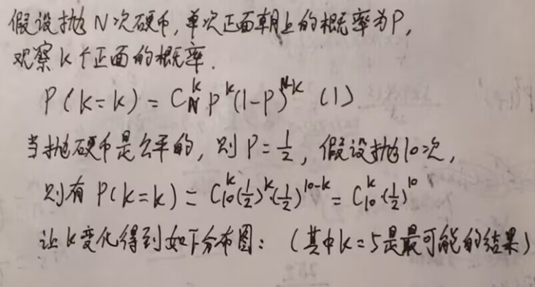 假设抛N次硬币,单次正面朝上的概率为P,
观察k个正面的概率.
P(k=k) = C_N^k p^k(1-p)^{N-k} (1)
当抛硬币是公平的,则P=1/2,假设抛10次,
则有 P(k=k) = C_10^k(1/2)^k(1/2)^{10-k} = C_10^k(1/2)^10
让k变化得到如下分布图:(其中k=5是最可能的结果)